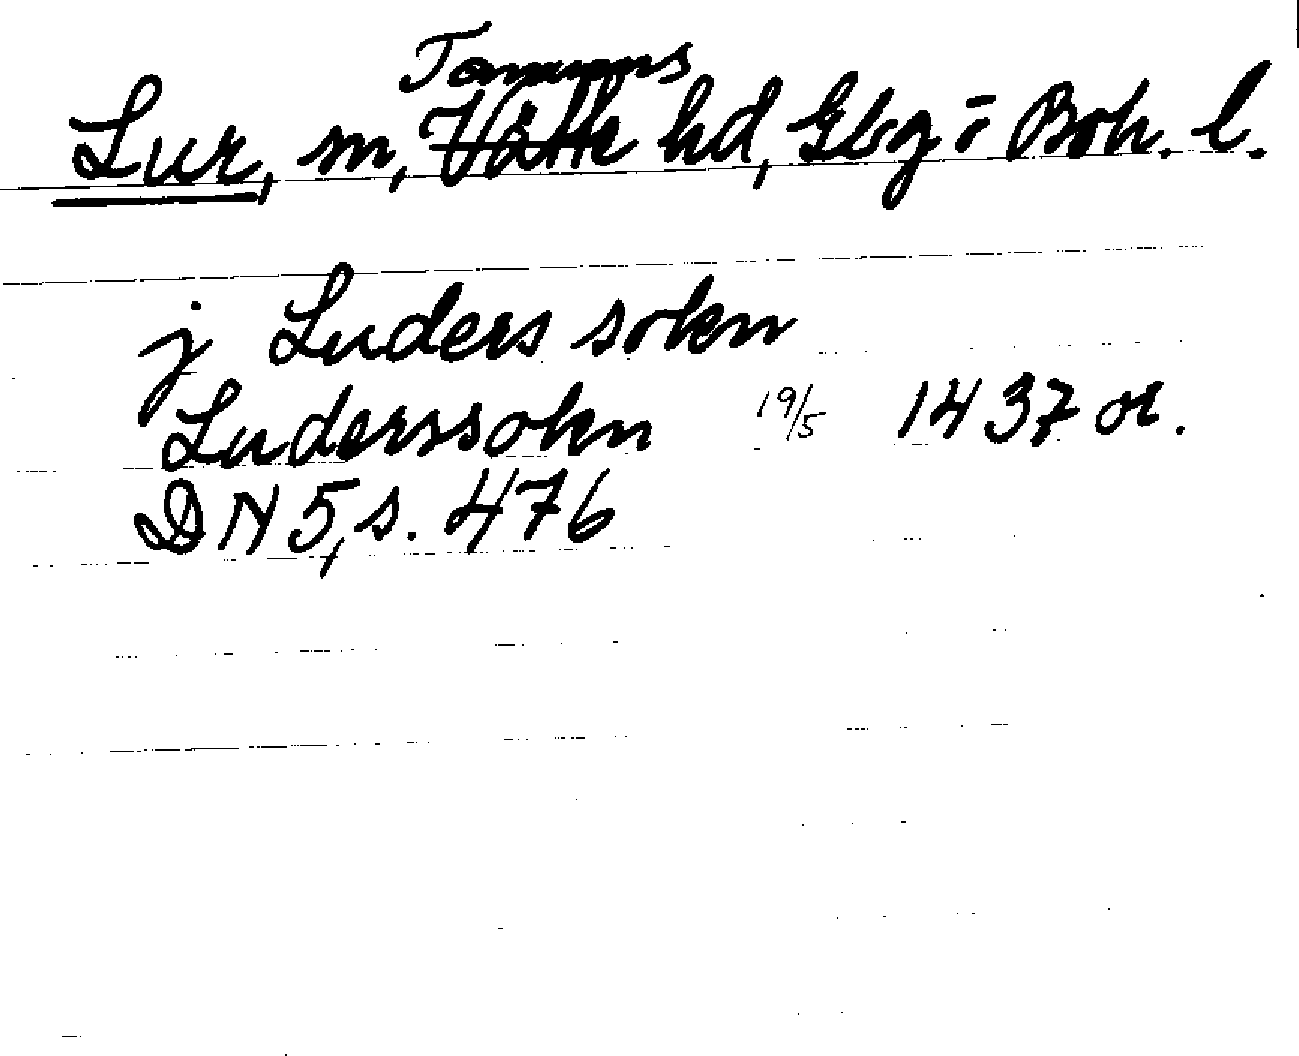 Tanums
Lur, sn, Vätte hd, Gbg o Boh. l.
j Luders sokn
Luderssokn 19/5 1437 or.
DN 5, s. 476